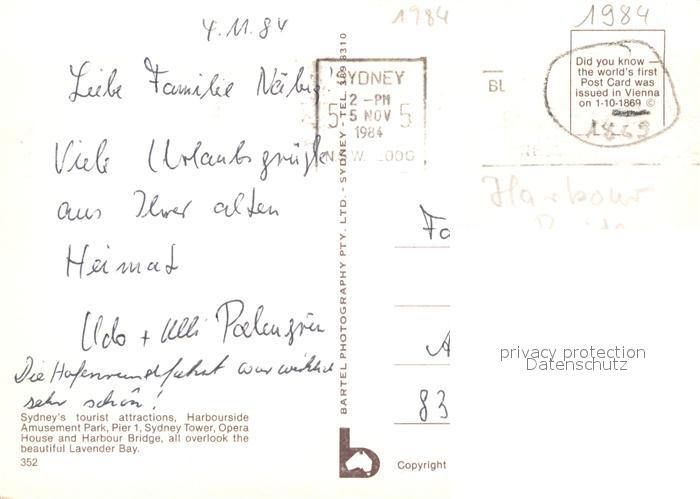 4.11.84
1984
1984
Liebe Familie
SYDNEY
12-PM
5 5 NOV 5
1984
N.S.W. 2001
BL
Did you know —
the world's first
Post Card was
issued in Vienna
on 1-10-1869 ©
1869
Viele Urlaubsgrüße
aus Ihrer alten
Heimat
Udo + Ulli
Die Hafenrundfahrt war wirklich
sehr schön!
Harbour
Fa
A
83
BARTEL PHOTOGRAPHY PTY. LTD. - SYDNEY - TEL. 389 8310
privacy protection
Datenschutz
Sydney's tourist attractions, Harbourside
Amusement Park, Pier 1, Sydney Tower, Opera
House and Harbour Bridge, all overlook the
beautiful Lavender Bay.
352
b
Copyright